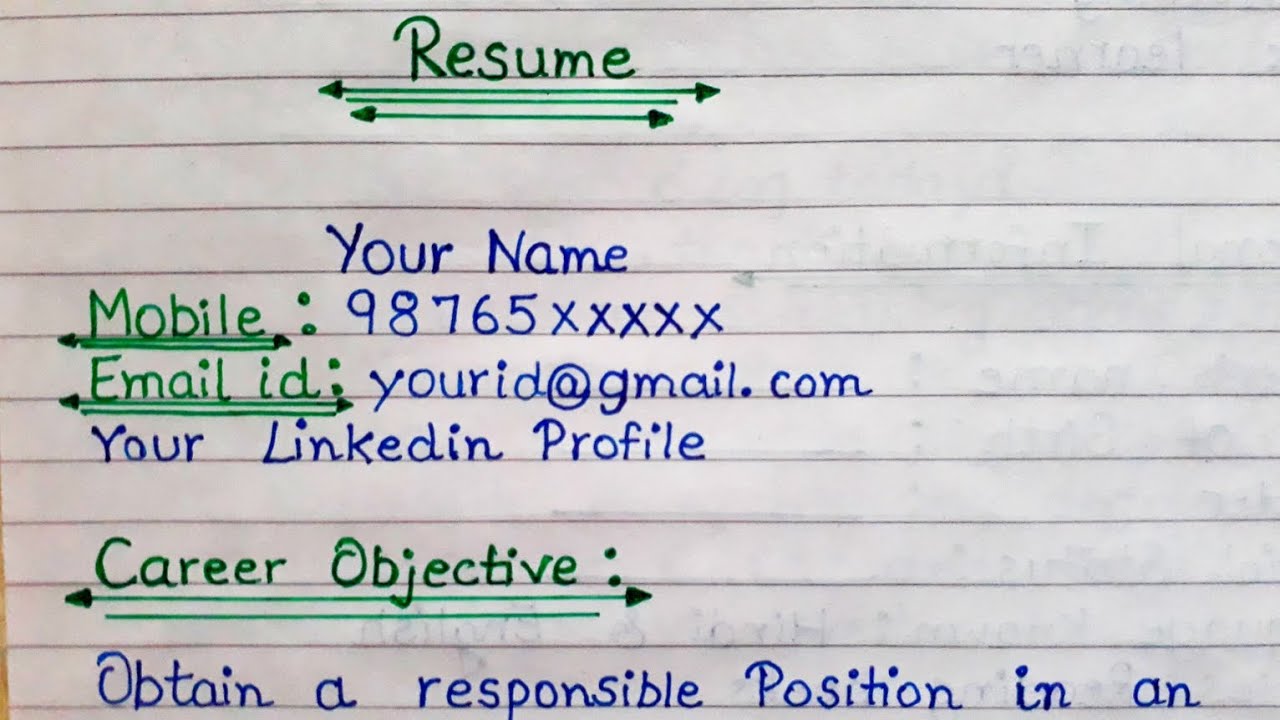 Resume
Your Name
Mobile : 98765xxxxx
Email id : yourid@gmail.com
Your Linkedin Profile
Career Objective :
Obtain a responsible Position in an